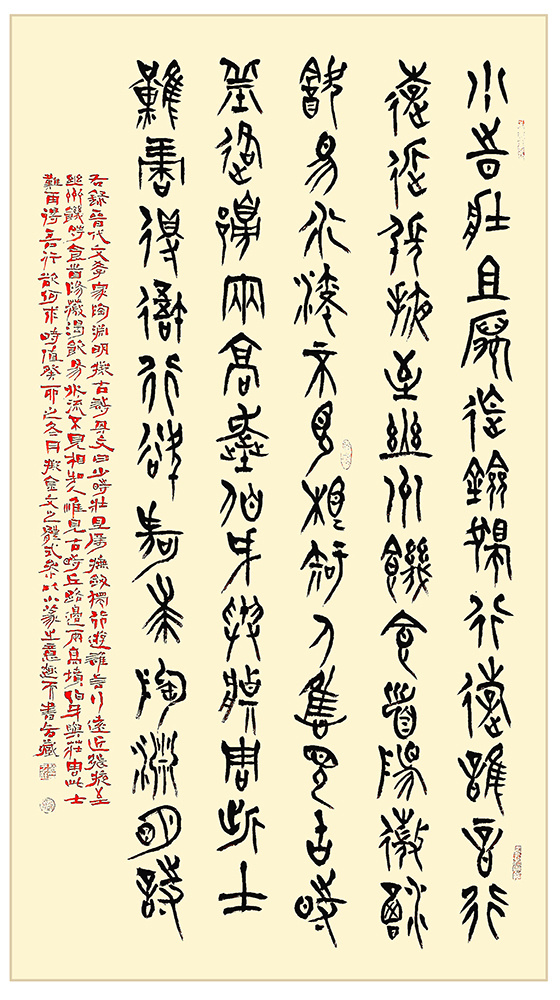 少時壯且厲撫劍獨行遊誰言行
遠近張掖至幽州饑食首陽薇渴
飲易水流不見相知人惟見古時
丘路邊兩高墳伯牙與莊周此士
難再得吾行欲何求陶淵明詩
右錄晉代文學家陶淵明擬古詩其文曰少時壯且厲撫劍獨行遊誰言行遠近張掖至
幽州饑食首陽薇渴飲易水流不見相知人惟見古時丘路邊兩高墳伯牙與莊周此士
難再得吾行欲何求時值癸卯之冬月擬金文之體式參以小篆之意趣而書